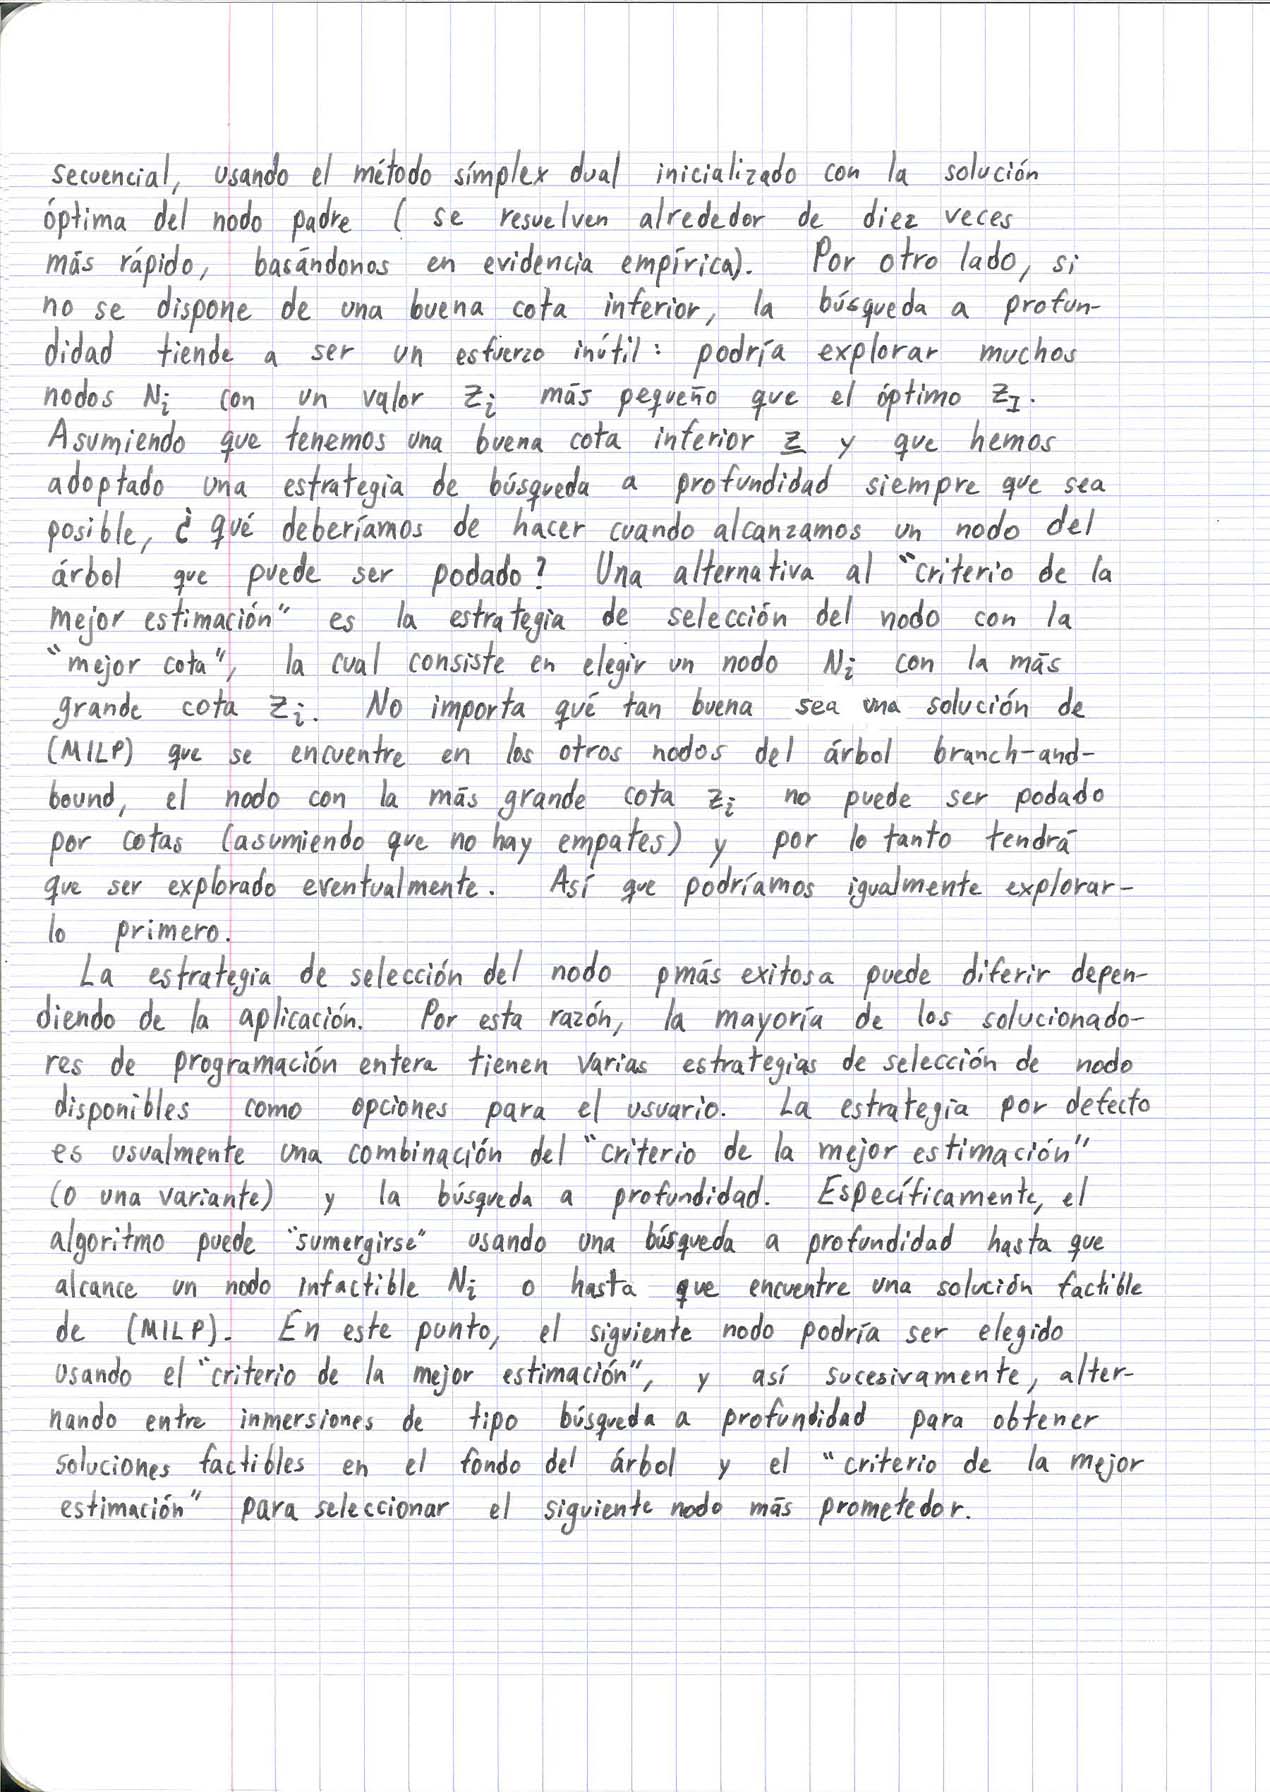 secuencial, usando el método símplex dual inicializado con la solución
óptima del nodo padre ( se resuelven alrededor de diez veces
más rápido, basándonos en evidencia empírica). Por otro lado, si
no se dispone de una buena cota inferior, la búsqueda a profun-
didad tiende a ser un esfuerzo inútil: podría explorar muchos
nodos Nᵢ con un valor zᵢ más pequeño que el óptimo z_I.
Asumiendo que tenemos una buena cota inferior z̲ y que hemos
adoptado una estrategia de búsqueda a profundidad siempre que sea
posible, ¿ qué deberíamos de hacer cuando alcanzamos un nodo del
árbol que puede ser podado? Una alternativa al "criterio de la
mejor estimación" es la estrategia de selección del nodo con la
"mejor cota", la cual consiste en elegir un nodo Nᵢ con la más
grande cota zᵢ. No importa qué tan buena sea una solución de
(MILP) que se encuentre en los otros nodos del árbol branch-and-
bound, el nodo con la más grande cota zᵢ no puede ser podado
por cotas (asumiendo que no hay empates) y por lo tanto tendrá
que ser explorado eventualmente. Así que podríamos igualmente explorar-
lo primero.
La estrategia de selección del nodo pmás exitosa puede diferir depen-
diendo de la aplicación. Por esta razón, la mayoría de los solucionado-
res de programación entera tienen varias estrategias de selección de nodo
disponibles como opciones para el usuario. La estrategia por defecto
es usualmente una combinación del "criterio de la mejor estimación"
(o una variante) y la búsqueda a profundidad. Específicamente, el
algoritmo puede "sumergirse" usando una búsqueda a profundidad hasta que
alcance un nodo infactible Nᵢ o hasta que encuentre una solución factible
de (MILP). En este punto, el siguiente nodo podría ser elegido
usando el "criterio de la mejor estimación", y así sucesivamente, alter-
nando entre inmersiones de tipo búsqueda a profundidad para obtener
soluciones factibles en el fondo del árbol y el "criterio de la mejor
estimación" para seleccionar el siguiente nodo más prometedor.